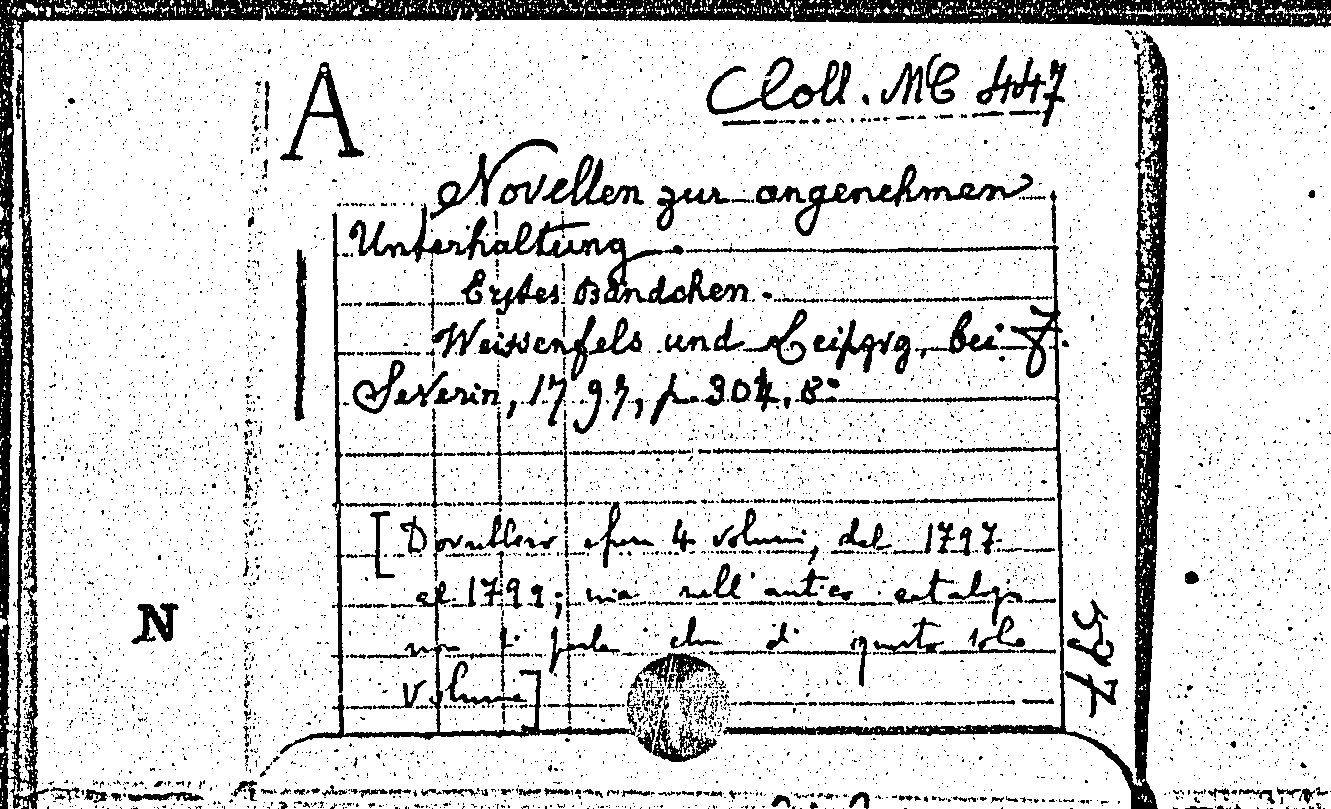 A
Coll. MC 447
Novellen zur angenehmen
Unterhaltung.
Erstes Bändchen.
Weissenfels und Leipzig, bei F.
Severin, 1797, p. 304, 8°
[Dovrebbero essere 4 volumi, dal 1797
al 1799; ma nell'antico catalogo
non si parla che di questo solo
volume]
597
N